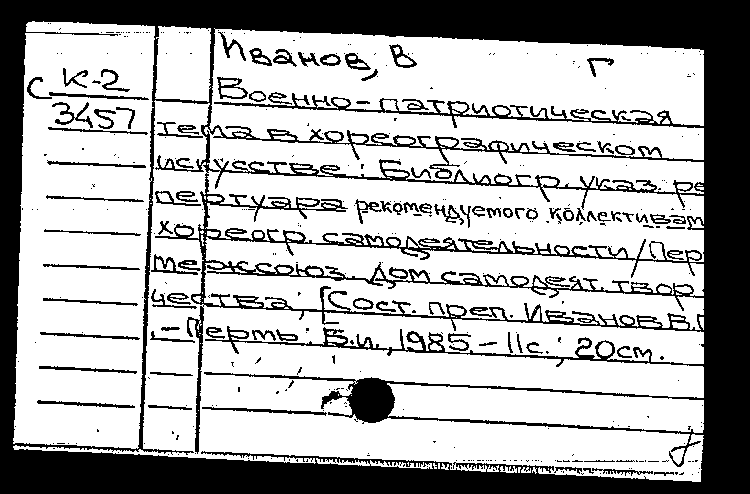 Иванов, В Г
С К-2
3457
Военно-патриотическая
тема в хореографическом
искусстве: Библиогр. указ. ре
пертуара рекомендуемого коллективам
хореогр. самодеятельности/Пер
межсоюз. Дом самодеят. твор
чества; [Сост. преп. Иванов В.Г
.-Пермь: Б.и., 1985.-11с.; 20см.